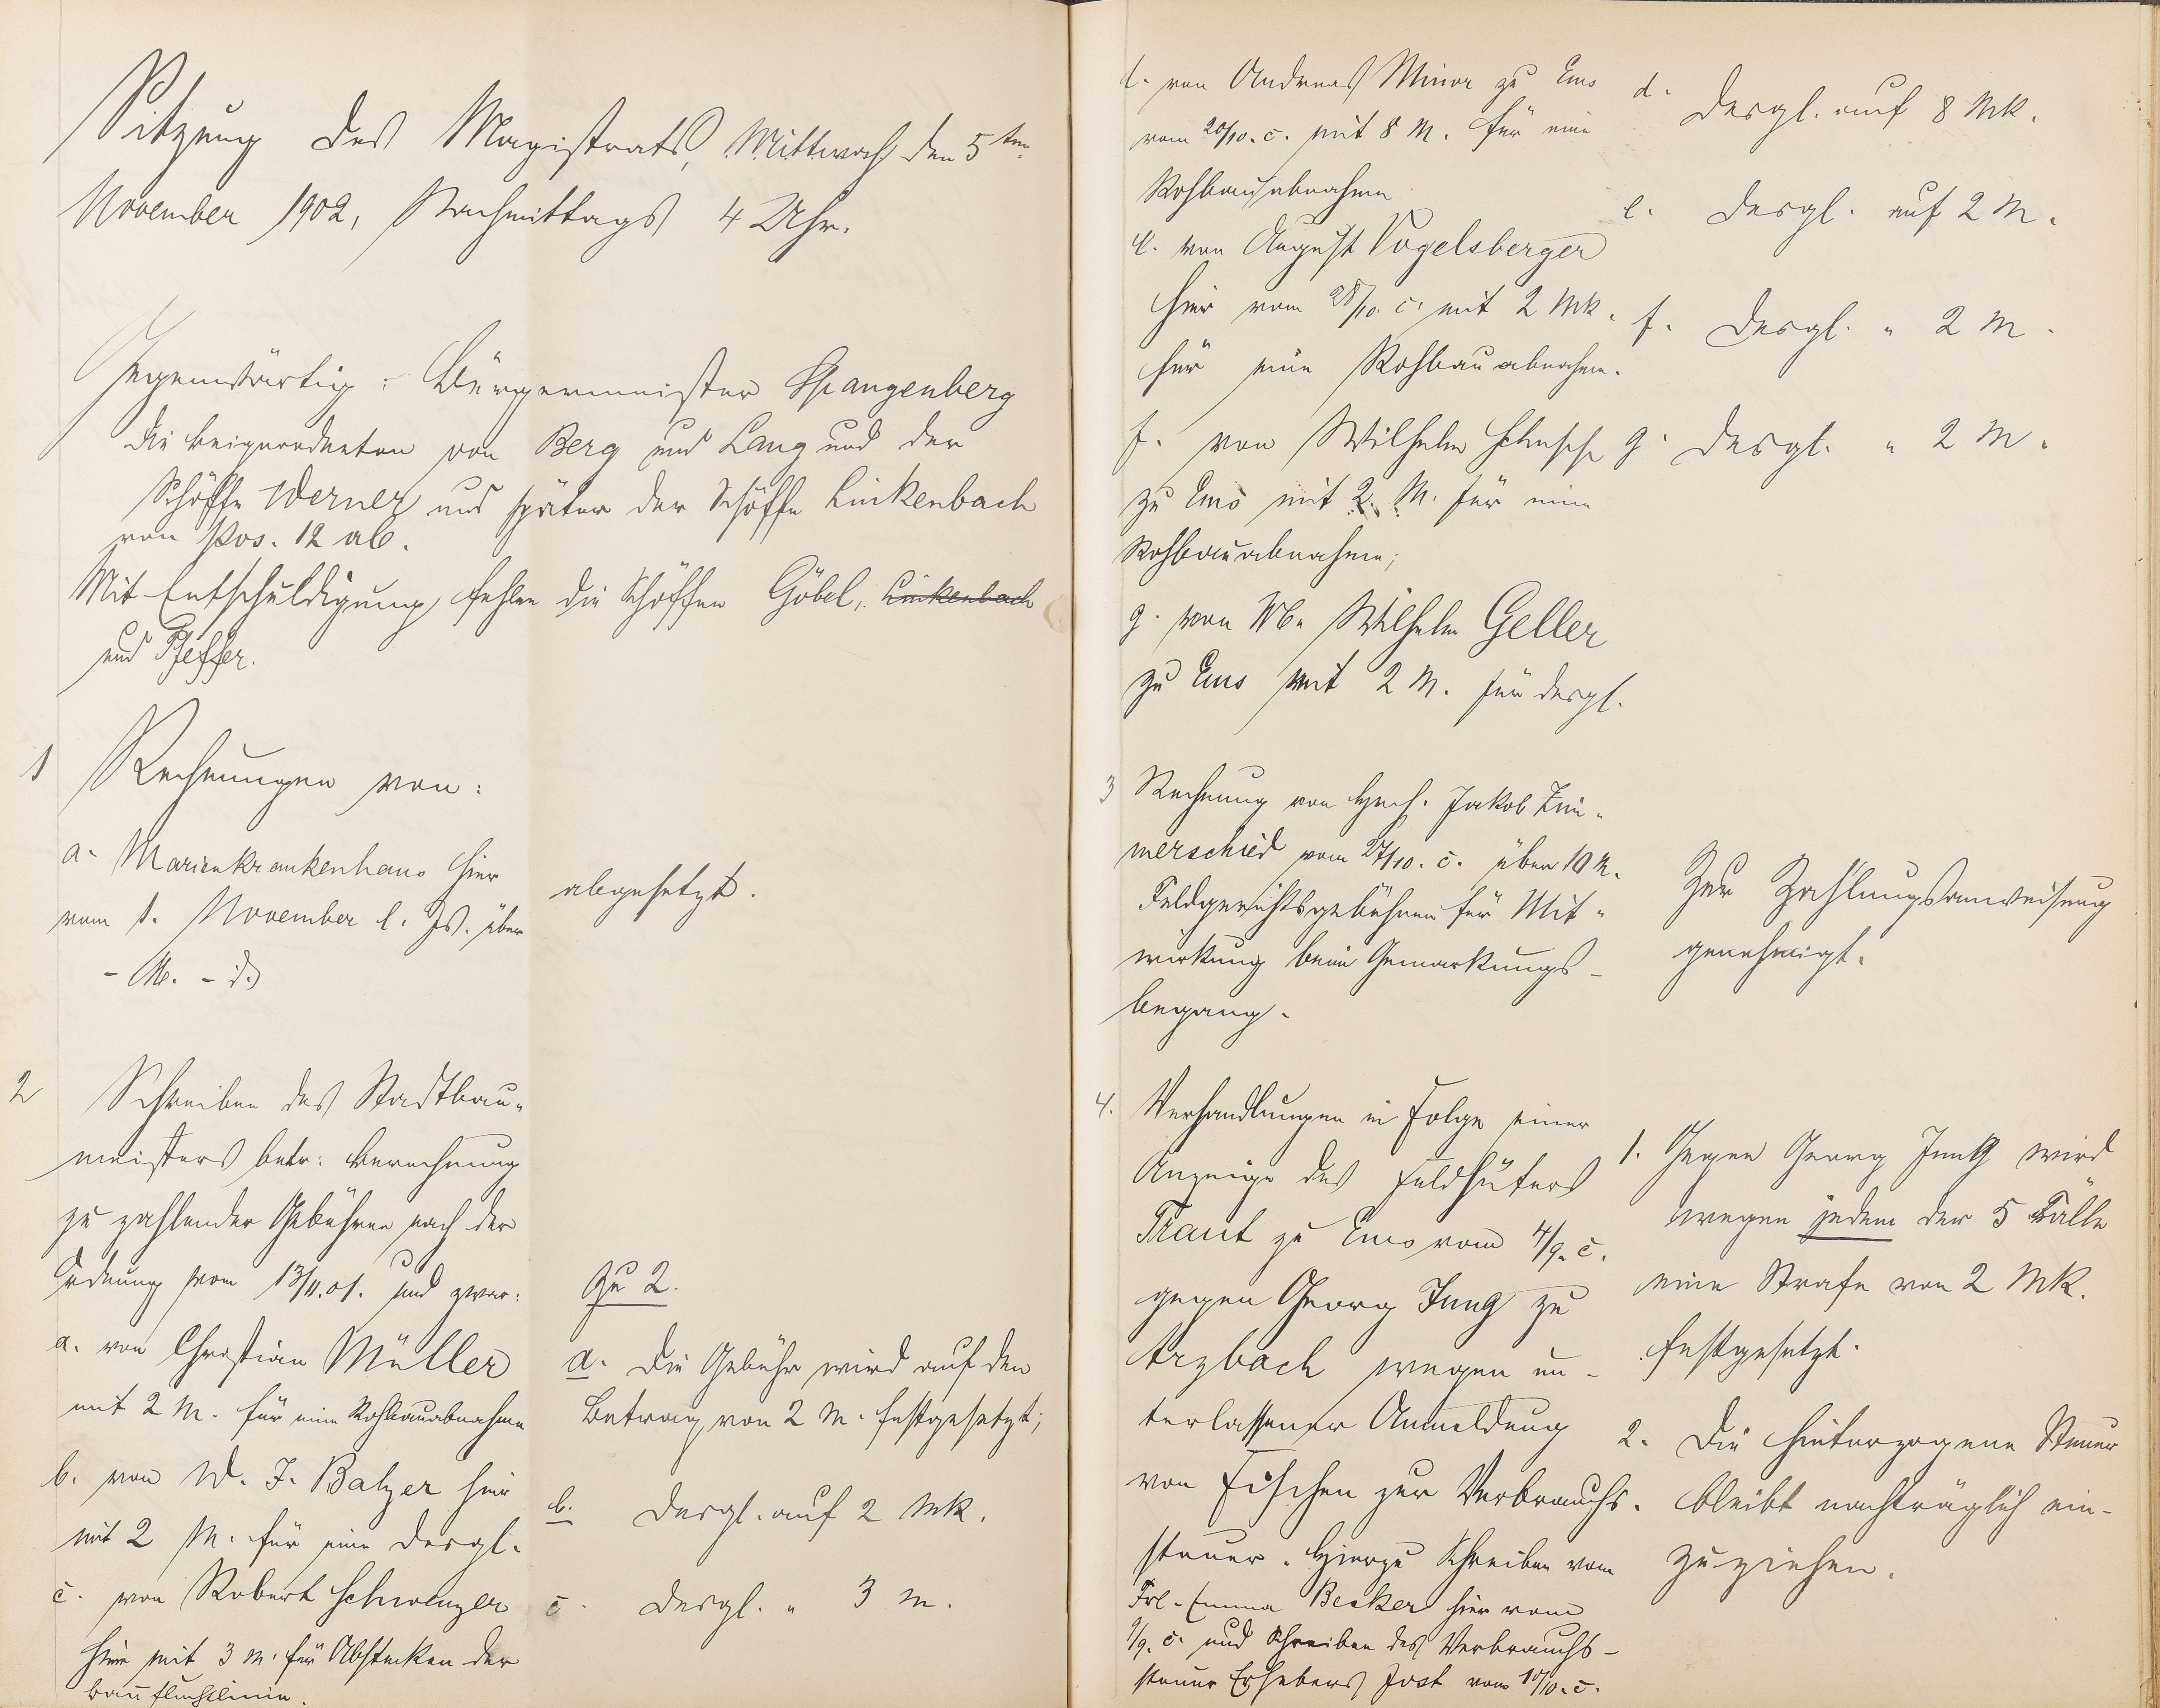 Sitzung des Magistrats, Mittwoch den 5ten
November 1902, Nachmittags 4 Uhr.
Gegenwärtig: Bürgermeister Spangenberg
die Beigeordneten von Berg und Lang und der
Schöffe Werner und später der Schöffe Linkenbach
von Pos. 12 ab.
Mit Entschuldigung fehlen die Schöffen Göbel, Linkenbach
und Pfeffer.
1 Rechnungen von:
a. Marienkrankenhaus hier
vom 1. November l. Js. über
- M. - d)
abgesetzt.
2 Schreiben des Stadtbau-
meisters betr: Berechnung
zu zahlender Gebühren nach der
Ordnung vom 13/11.01. und zwar:
a. von Christian Müller
mit 2 M. für eine Rohbauabnahme
b. von W. J. Balzer hier
mit 2 M. für eine desgl.
c. von Robert Schwenzer
hier mit 3 M. für Abstecken der
Baufluchtlinie.
Zu 2.
a. Die Gebühr wird auf den
Betrag von 2 M. festgesetzt;
b. desgl. auf 2 Mk.
c. desgl. " 3 M.
d. von Andreas Minor zu Ems
vom 20/10. c. mit 8 M. für eine
Rohbauabnahme
e. von August Vogelsberger
hier vom 28/10. c. mit 2 Mk.
für eine Rohbauabnahme.
f. von Wilhelm
zu Ems mit 2 M. für eine
Rohbauabnahme;
g. von Wilhelm Geller
zu Ems mit 2 M. für desgl.
d. desgl. auf 8 Mk.
e. desgl. auf 2 M.
f. desgl. " 2 M.
g. desgl. " 2 M.
3 Rechnung von Hrch. Jakob Zim-
merschied vom 27/10. c. über 10 M.
Feldgerichtsgebühren für Mit-
wirkung beim Gemarkungs-
begang.
Zur Zahlungsanweisung
genehmigt.
4. Verhandlungen in Folge einer
Anzeige des Feldhüters
Traut zu Ems vom 4/9. c.
gegen Georg Jung zu
Arzbach wegen un-
terlassener Anmeldung
von Fischen zur Verbrauchs-
steuer. Hierzu Schreiben vom
Frl. Emma Becker hier vom
9. c. und Schreiben des Verbrauchs-
steuer Erhebers Jost vom 10. c.
1. Gegen Georg Jung wird
wegen jedem der 5 Fälle
eine Strafe von 2 Mk.
festgesetzt.
2. Die hinterzogene Steuer
bleibt nachträglich ein-
zuziehen.